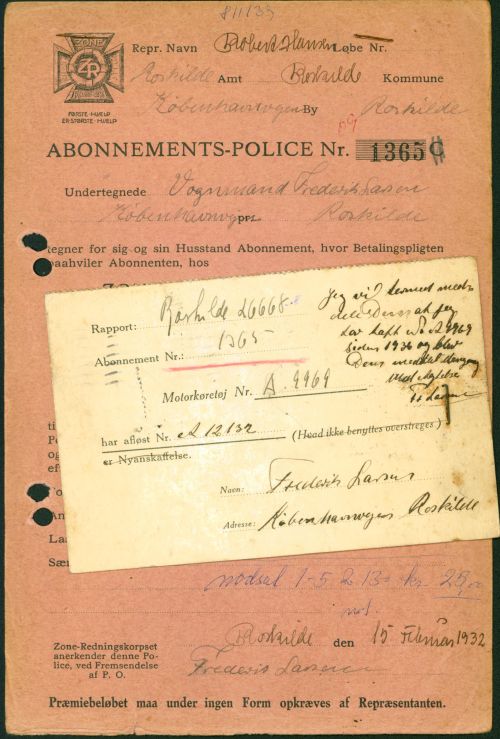 8/1133
ZONE
ZR
FØRSTE · HJÆLP
ER STØRSTE · HJÆLP
Repr. Navn Robert Hansen Løbe Nr.
Roskilde Amt Roskilde Kommune
Københavnvegen By Roskilde
ABONNEMENTS-POLICE Nr. 1365
Undertegnede Vognmand Frederik Larsen
Københavnvegen Roskilde
tegner for sig og sin Husstand Abonnement, hvor Betalingspligten
paahviler Abonnenten, hos
Rapport: Roskilde 26668
Abonnement Nr.: 1365
Motorkøretøj Nr. A. 9969
har afløst Nr. A 12132 (Hvad ikke benyttes overstreges)
er Nyanskaffelse.
Jeg vil hermed med-
dele Dem at jeg
har haft A 9969
siden 1936 og blev
Dem meddelt dengang
med Agtelse
Fr Larsen
Navn: Frederik Larsen
Adresse: Københavnvegen Roskilde
1-5 213 kr 25,00
Roskilde den 15 Februar 1932
Zone-Redningskorpset
anerkender denne Po-
lice, ved Fremsendelse
af P. O.
Frederik Larsen
Præmiebeløbet maa under ingen Form opkræves af Repræsentanten.